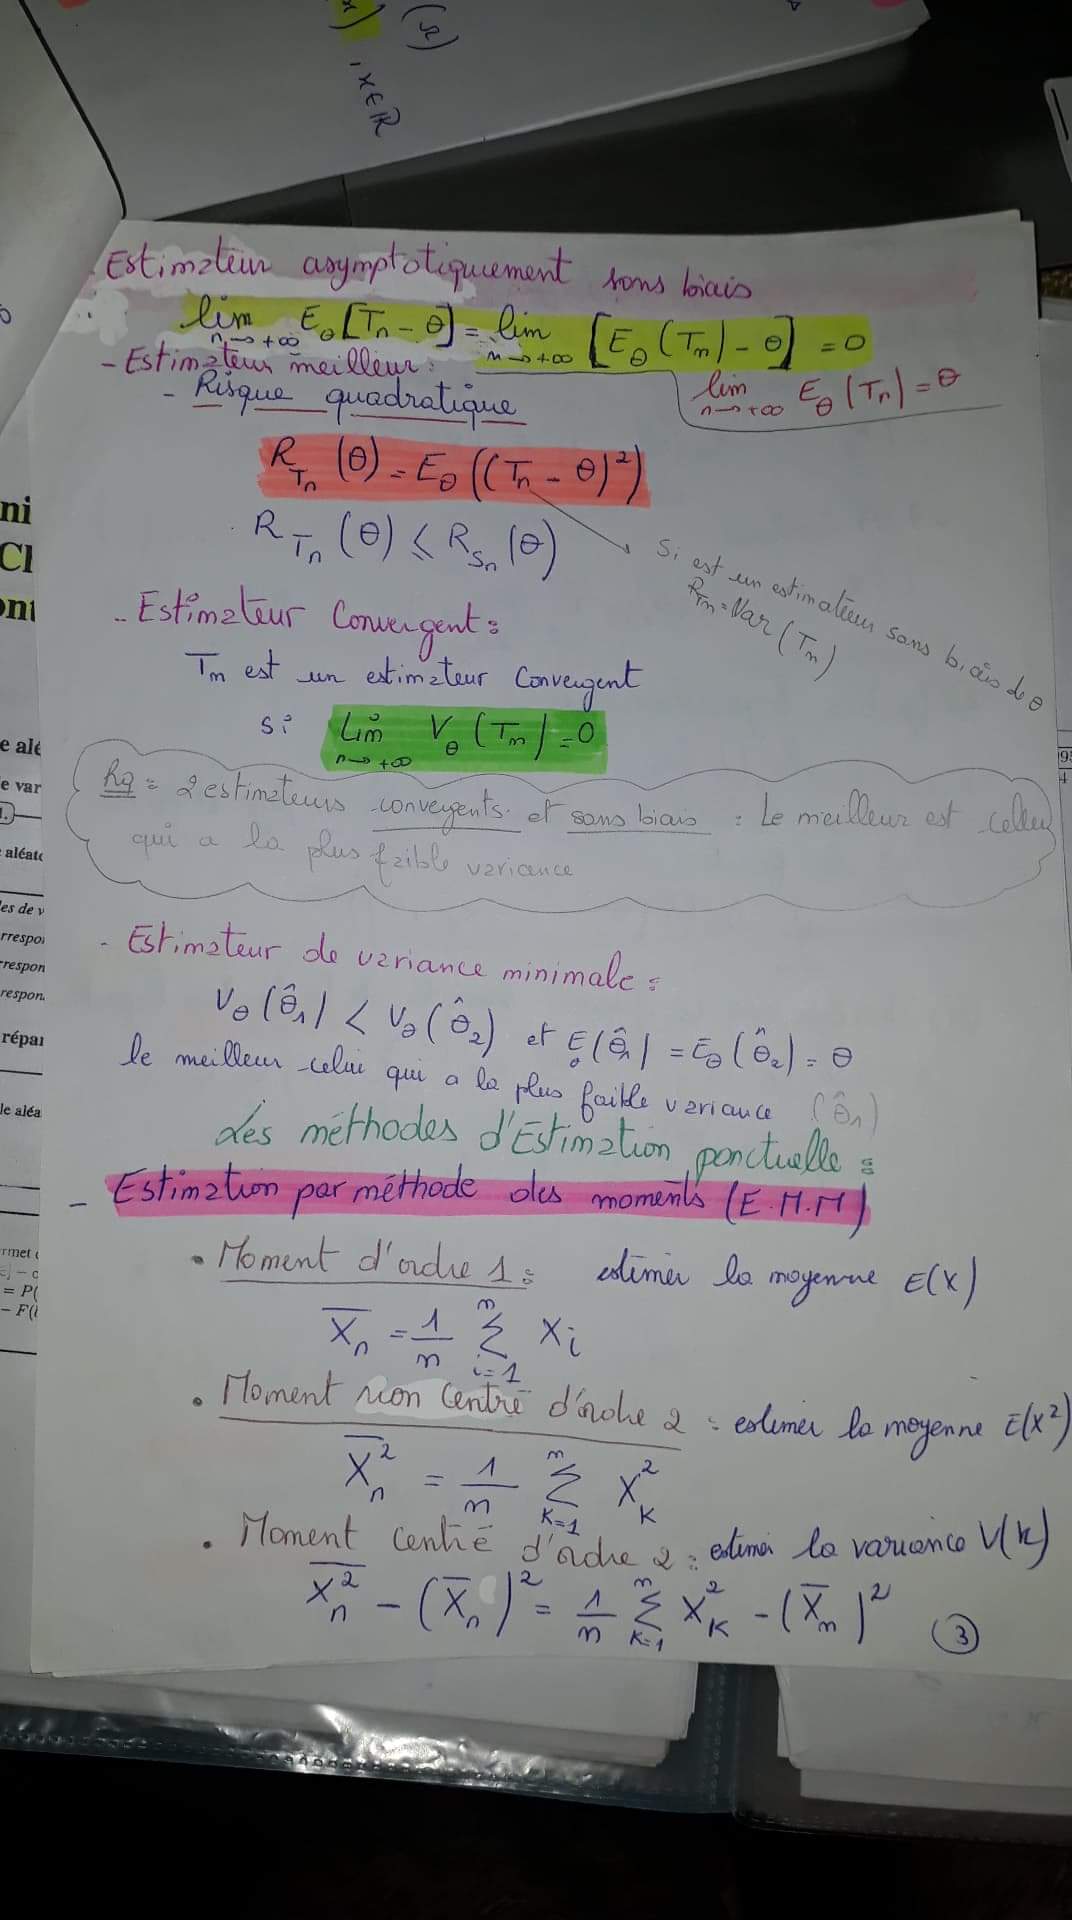 (x)
, x∈R
Estimateur asymptotiquement sans biais
lim n→+∞ Eθ[Tn - θ] = lim n→+∞ [Eθ(Tn) - θ] = 0
- Estimateur meilleur :
lim n→+∞ Eθ(Tn) = θ
- Risque quadratique
R_Tn(θ) = Eθ((Tn - θ)²)
R_Tn(θ) ≤ R_Sn(θ)
Si est un estimateur sans biais de θ
R_Tn = Var(Tn)
.. Estimateur Convergent :
Tn est un estimateur Convergent
si Lim n→+∞ Vθ(Tn) = 0
Rq = 2 estimateurs convergents et sans biais : Le meilleur est celui
qui a la plus faible variance
- Estimateur de variance minimale :
Vθ(θ̂1) < Vθ(θ̂2) et Eθ(θ̂1) = Eθ(θ̂2) = θ
le meilleur celui qui a la plus faible variance (θ̂1)
Les méthodes d'Estimation ponctuelle :
- Estimation par méthode des moments (E.M.M)
• Moment d'ordre 1 : estimer la moyenne E(X)
X̅n = 1/n Σ i=1 n Xi
• Moment non Centré d'ordre 2 : estimer la moyenne E(X²)
X̅n² = 1/n Σ K=1 n X²K
• Moment centré d'ordre 2 : estimer la variance V(x)
X̅n² - (X̅n)² = 1/n Σ K=1 n X²K - (X̅n)²
3
ni
e alé
e var
aléato
les de v
rrespon
respon
répar
le aléa
= P(
- F(